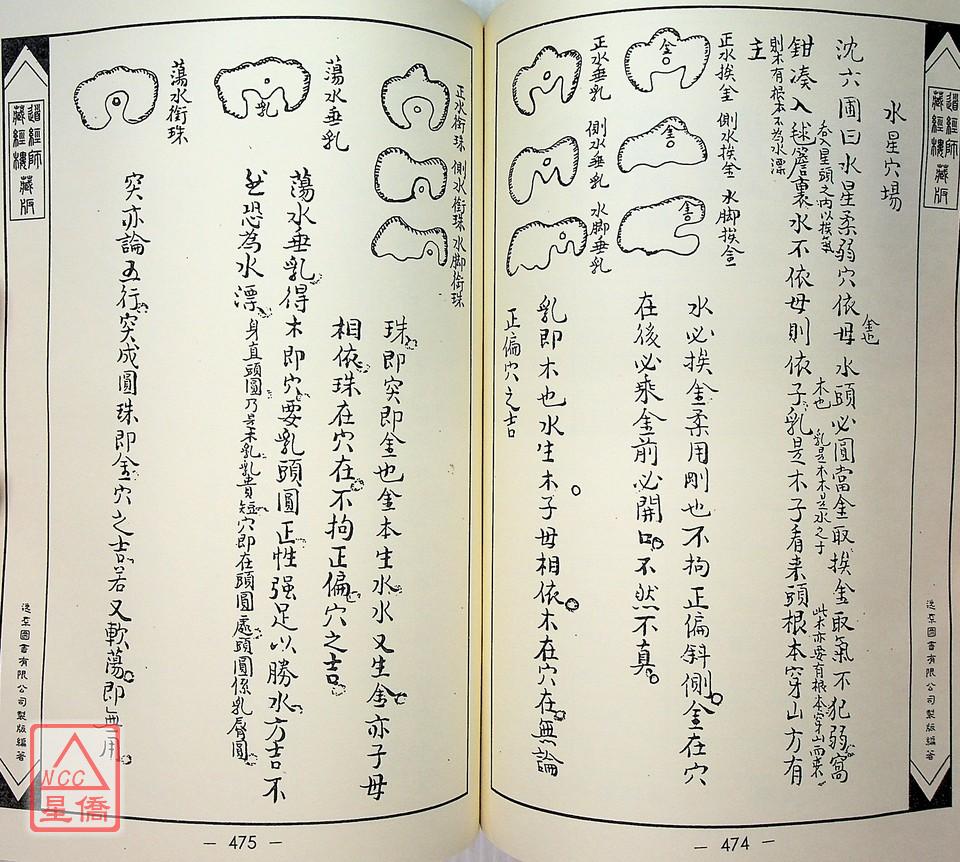 水星穴場
沈六圃曰水星柔弱穴依母水頭必圓當金取挨金取氣不犯弱窩
金也
鉗湊入毬簷裏水不依母則依子乳是木子看来頭根本穿山方有
在星頭之内以挨氣
木也
乳是木木是水之子
此木亦要有根本穿山而来
主
則木有根本不為水漂
正水挨金
側水挨金
水脚挨金
金
金
金
水必挨金柔用剛也不拘正偏斜側金在穴
在後必乘金前必開口不然不真
正水垂乳
側水垂乳
水脚垂乳
乳即木也水生木子母相依木在穴在無論
正偏穴之吉
道經師
藏經樓藏版
逸群圖書有限公司製版編著
— 474 —
正水銜珠
側水銜珠
水脚銜珠
珠即突即金也金本生水水又生金亦子母
相依珠在穴在不拘正偏穴之吉
蕩水垂乳
乳
蕩水垂乳得木即穴要乳頭圓正性强足以勝水方吉不
然恐為水漂
身直頭圓乃是木乳乳貴短穴即在頭圓處頭圓係乳唇圓
蕩水銜珠
突亦論五行突成圓珠即金穴之吉若又軟蕩即無用
道經師
藏經樓藏版
逸群圖書有限公司製版編著
— 475 —
NCC
星僑